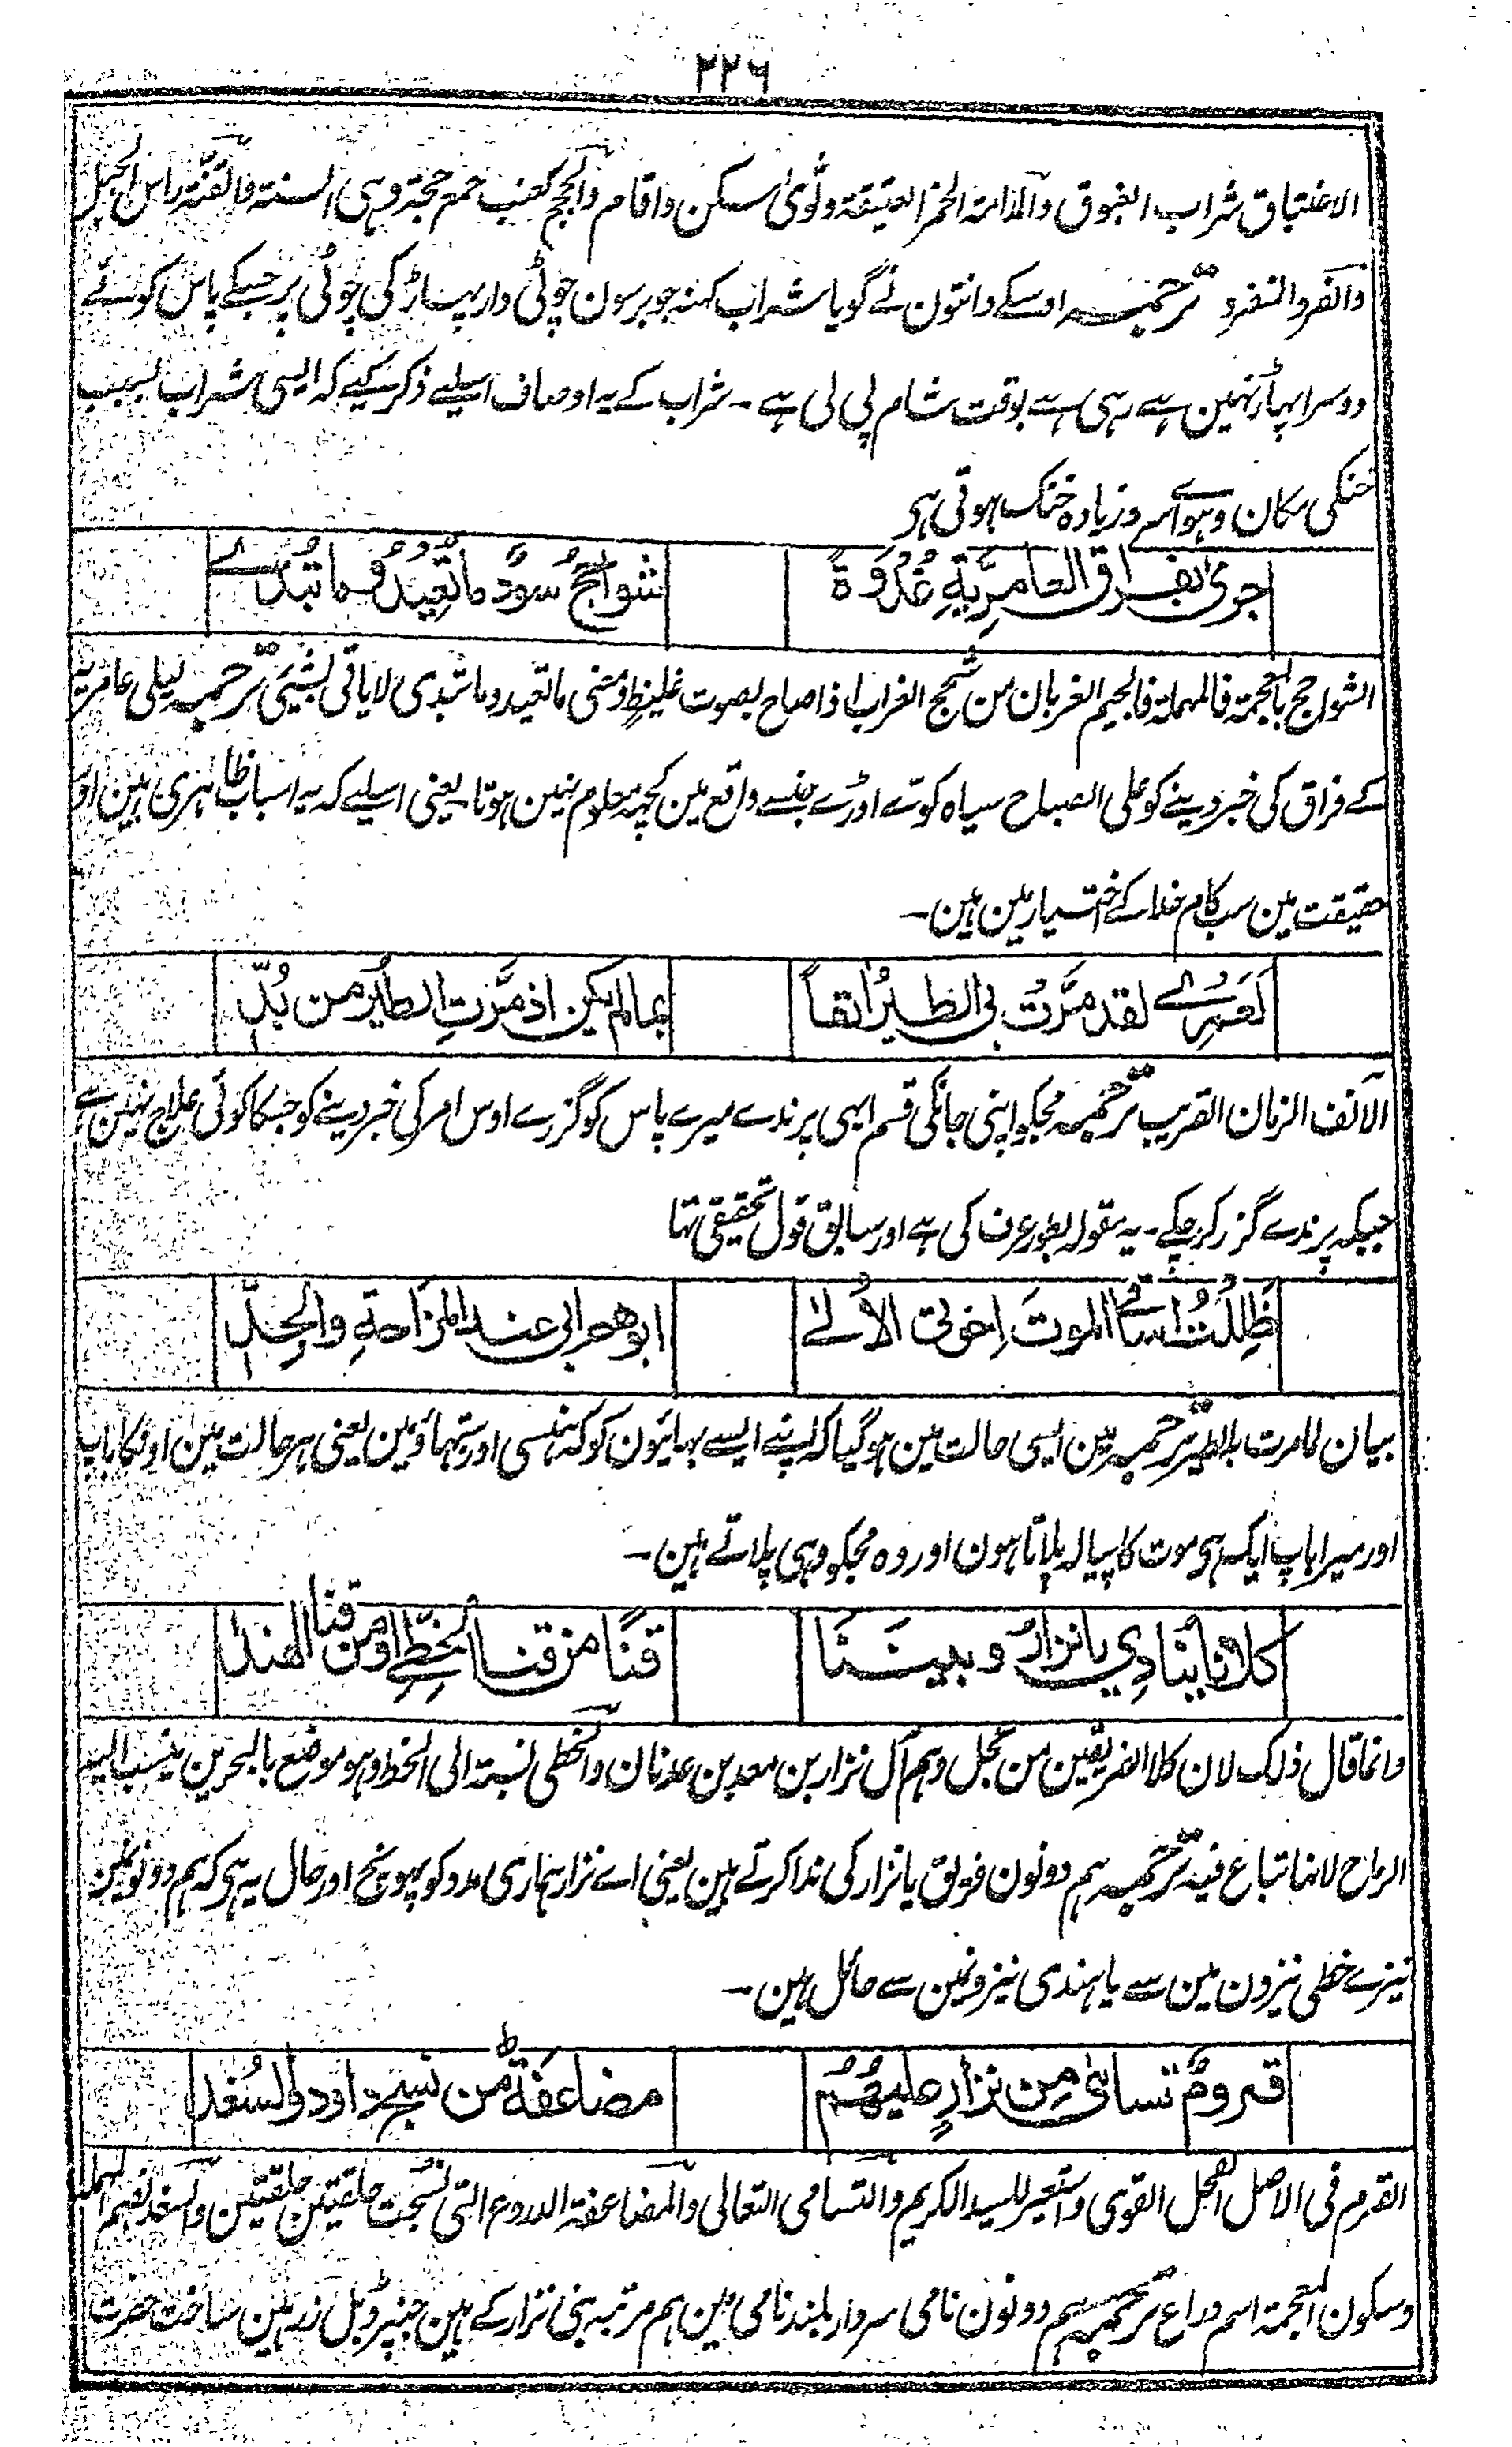 ۲۲۶
الاغتباق شراب الغبوق والمدامۃ الخمر العتیقۃ وثوی سکن واقام والحجج کعنب جمع حجۃ وہی السنۃ والقنۃ راس الجبل
والفرد المنفرد ترجمہ اوسکے دانتون نے گویا شراب کہنہ جو برسون چوٹی دار پہاڑ کی چوٹی پر جسکے پاس کوئے
دوسرا پہاڑ نہین ہے رہی ہے بوقت شام پی لی ہے ۔ شراب کے یہ اوصاف اسلیے ذکر کیے کہ ایسی شراب بسبب
خنکی مکان وہوا سے زیادہ خنک ہوتی ہی
جری بفراق العامریَّةِ غُدْوَةً
شواحجُ سودٌ ما تُعِیْدُ وما تبدی
الشواحج بالمعجمۃ فالمہملۃ فالجیم الغربان من شحج الغراب اذا صاح بصوت غلیظ ومعنی ما تعید وما تبدی لا یاتی بشیٔ ترجمہ لیلی عامریہ
کے فراق کی خبر دینے کو علی الصباح سیاہ کوّے اوڑے جنسے واقع مین کچہ معلوم نہین ہوتا یعنی اسلیے کہ یہ اسباب ظاہری ہین اور
حقیقت مین سب کام خدا کے اختیار مین ہین ۔
لَعَمْرِے لقد مَرَّتْ بی الطیرُ اٰنفاً
بمالم یکن اذ مرَّتِ الطیرُ من بُدِّ
الآنف الزمان القریب ترجمہ مجکو اپنی جانکی قسم ابہی پرندے میرے پاس کو گزرے اوس امر کی خبر دینے کو جسکا کوئی علاج نہین ہے
جبکہ پرندے گزر کر چکے ۔ یہ مقولہ بطور عرف کی ہے اور سابق قول تحقیقی تہا
ظَلِلْتُ اُساقی الموتَ اِخوتی الاُلٰے
ابوهم ابی عند المزاحةِ والجِدِّ
بیان لما مرت بہ الطیر ترجمہ مین ایسی حالت مین ہوگیا کہ اپنے ایسے بہائیون کو کہ ہنسی اور تنہاؤ مین یعنی ہر حالت مین اونکا باپ
اور میرا باپ ایک ہی موت کا پیالہ پلاتا ہون اور وہ مجکو وہی پلاتے ہین ۔
کلانا ینادِی یا نزارُ وبینَنَا
قنًا من قنا الخطّیِ او من قنا الهند
وانما قال ذلک لان کلا الفریقین من عجل وہم آل نزار بن معد بن عدنان والخطی نسبۃ الی الخط وہو موضع بالبحرین ینسب الیہ
الرماح لانہا تباع فیہ ترجمہ ہم دونون فریق یا نزار کی ندا کرتے ہین یعنی اے نزار ہماری مدد کو پہونچ اور حال یہ ہی کہ ہم دونونمین
نیزے خطی نیزون مین سے یا ہندی نیزونمین سے حائل ہین ۔
قرومٌ تسامٰی مِن نزارٍ علیهُمُ
مضاعفةٌ من نسج داود والسُغد
القرم فی الاصل الفحل القوی واستعیر للسید الکریم والتسامی التعالی والمضاعفۃ الدروع التی نسجت حلقتین حلقتین والسغد بضم المہملۃ
وسکون المعجمۃ اسم دراع ترجمہ ہم دونون نامی سردار بلند نامی مین ہم مرتبہ بنی نزار کے ہین جنپر ڈبل زرہین ساخت حضرت